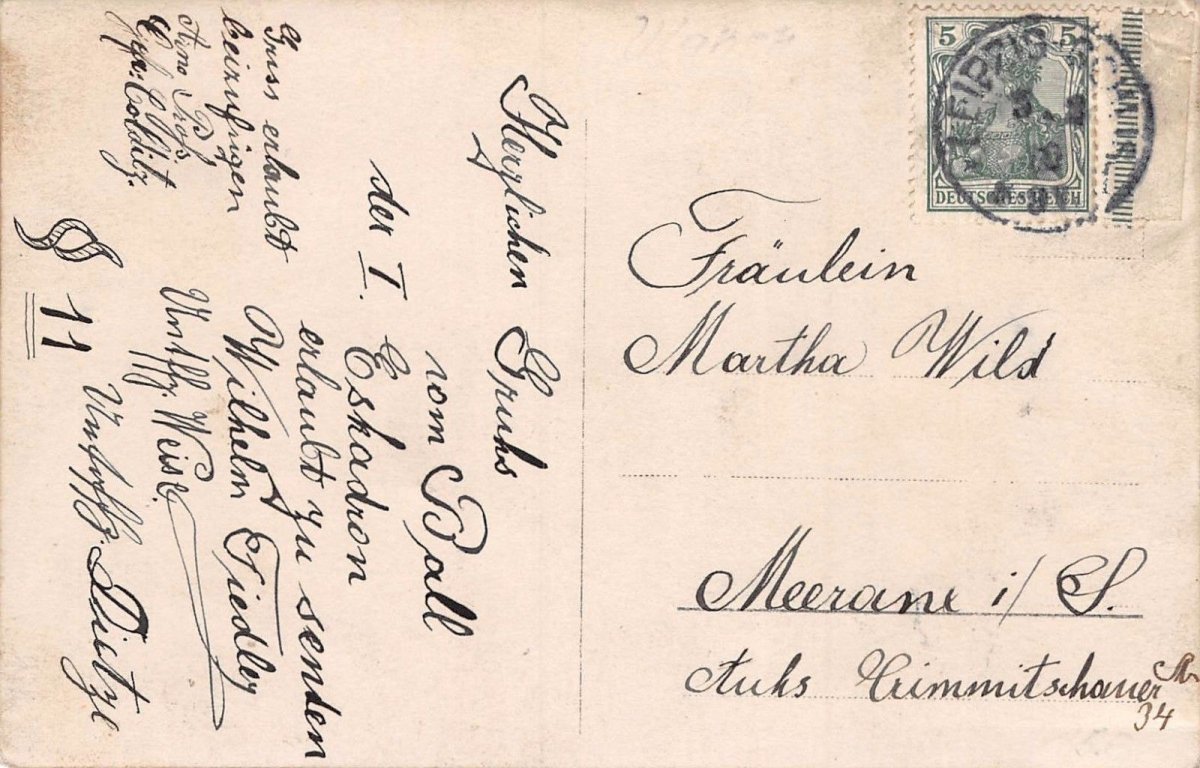 Herzlichen Gruhs
vom Ball
der I. Eskadron
erlaubt zu senden
Wilhelm Fiedler
Untffz. Weise.
Untoffz.
Gruss erlaubt
beizufügen
Arno
Colditz.
§§ 11
5 5
LEIPZIG
DEUTSCHES REICH
Fräulein
Martha Wild
Meerane i/S.
Crimmitschauer
34